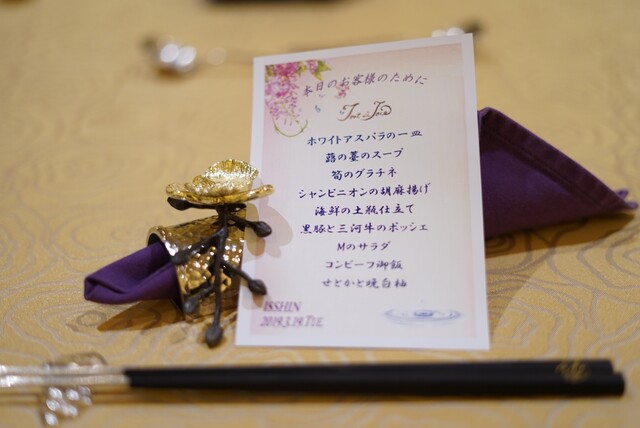 本日のお客様のために
ホワイトアスパラの一皿
蕗の薹のスープ
筍のグラチネ
シャンピニオンの胡麻揚げ
海鮮の土瓶仕立て
黒豚と三河牛のポッシェ
Mのサラダ
コンビーフ御飯
せとかと晩白柚
ISSHIN
2019.3.19.TUE